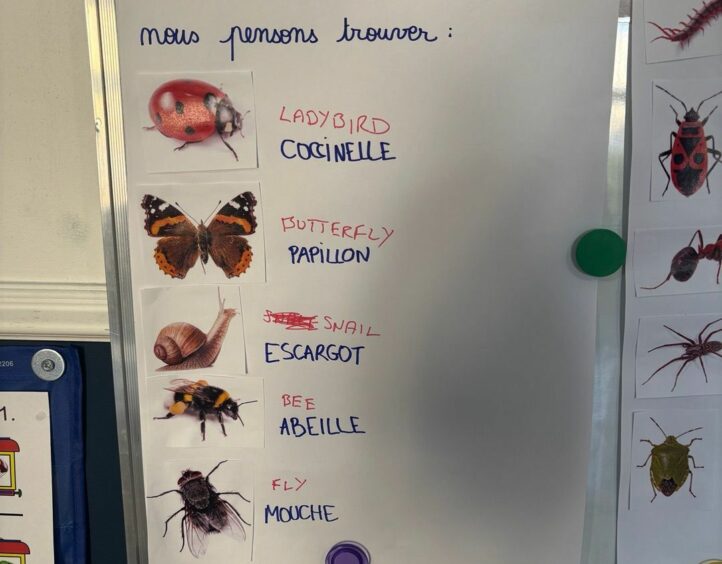 nous pensons trouver :
LADYBIRD
COCCINELLE
BUTTERFLY
PAPILLON
SNAIL
ESCARGOT
BEE
ABEILLE
FLY
MOUCHE
2206
1.